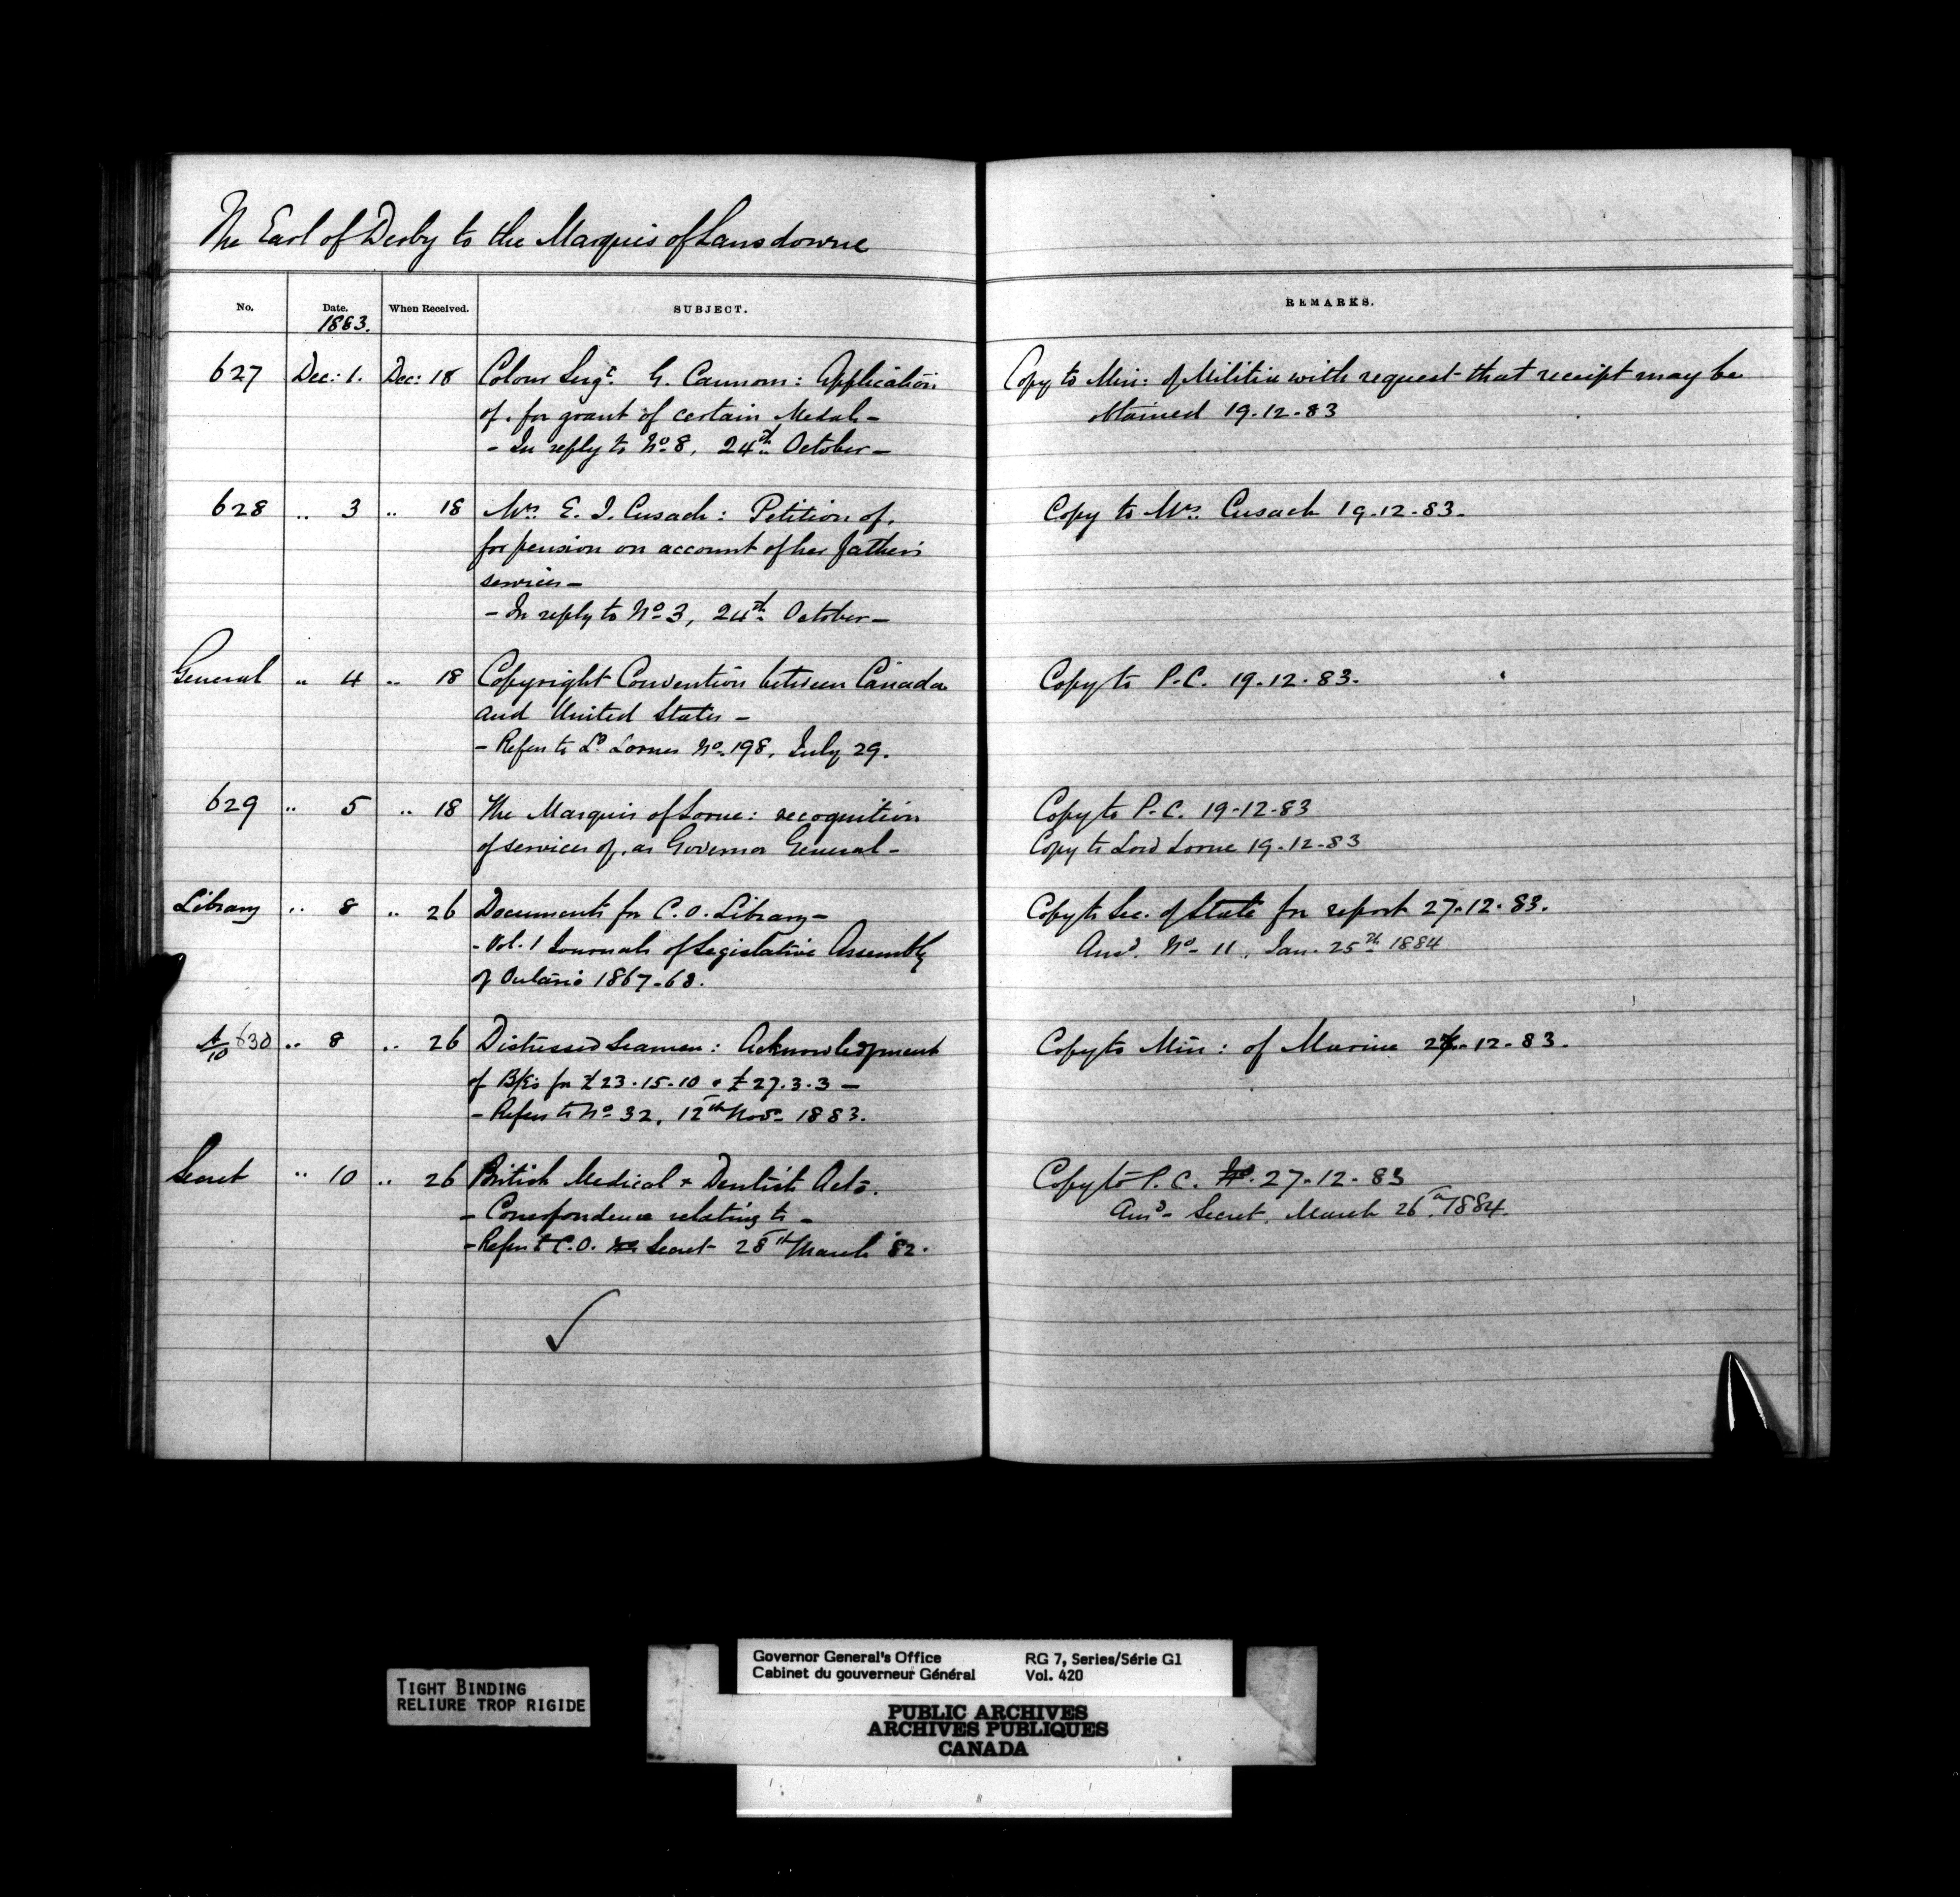 The Earl of Derby to the Marquis of Lansdowne
No. Date. When Received. SUBJECT. REMARKS.
1883.
627 Dec: 1. Dec: 18 Colour Sergt. G. Cannom: Application Copy to Min: of Militia with request that receipt may be
of, for grant of certain Medal - obtained 19.12.83
- In reply to No 8, 24th October -
628 " 3 " 18 Mrs. E. J. Cusack: Petition of, Copy to Mrs. Cusack 19.12.83.
for pension on account of her father's
services -
- In reply to No 3, 24th October -
General " 4 " 18 Copyright Convention between Canada Copy to P.C. 19.12.83.
and United States -
- Refers to Ld Lornes No. 198, July 29.
629 " 5 " 18 The Marquis of Lorne: recognition Copy to P.C. 19-12-83
of services of, as Governor General - Copy to Lord Lorne 19-12-83
Library " 8 " 26 Documents for C.O. Library - Copy to Sec. of State for report 27.12.83.
- Vol. 1 Journals of Legislative Assembly Ansd. No. 11, Jan. 25th 1884
of Ontario 1867-68.
A/10 630 " 8 " 26 Distressed Seamen: Acknowledgment Copy to Min: of Marine 27-12-83.
of B/Es for £23.15.10 & £27.3.3 -
- Refers to No 32, 12th Nov. 1883.
Secret " 10 " 26 British Medical & Dentist Acts. Copy to P.C. 27-12-83
- Correspondence relating to - Ansd. Secret, March 26th 1884.
- Refers to C.O. Secret 28th March '82.
Governor General's Office RG 7, Series/Série G1
Cabinet du gouverneur Général Vol. 420
TIGHT BINDING
RELIURE TROP RIGIDE
PUBLIC ARCHIVES
ARCHIVES PUBLIQUES
CANADA